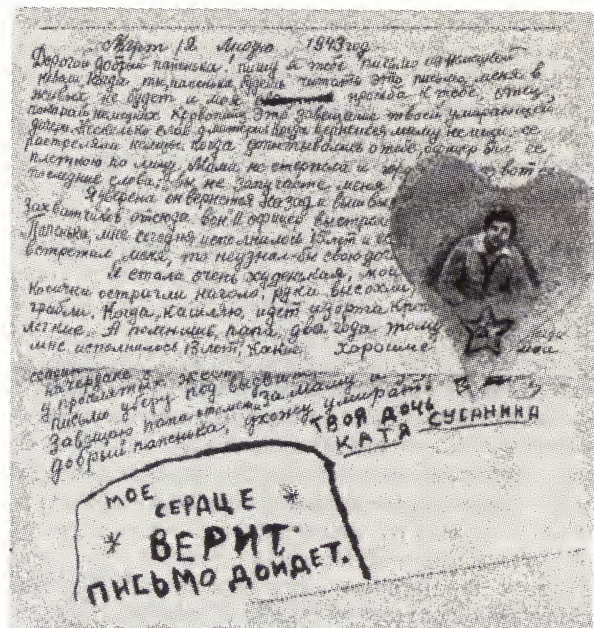 Март 12 Лиозно 1943 год
Дорогой добрый папенька! пишу я тебе письмо из немецкой
неволи. Когда ты, папенька, будешь читать это письмо, меня в
живых не будет и моя просьба к тебе, отец
покарай немецких кровопийц. Это завещание твоей умирающей
дочери. Несколько слов о матери. Когда вернешься маму не ищи. ее
расстреляли немцы. Когда допытывались о тебе, офицер бил ее
плеткою по лицу. Мама не стерпела и вот ее
последние слова. "Вы не запугаете меня
Я уверена он вернется назад и вышвы
захватчиков отсюда вон" И офицер выстрел
Папенька, мне сегодня исполнилось 15 лет и
встретил меня, то не узнал-бы свою доч
Я стала очень худенькая, мои
косички остригли наголо, руки высохли,
грабли. Когда кашляю, идет изо рта кров
легкие. А помнишь, папа, два года тому
мне исполнилось 13 лет, какие хорошие мои
чердаке
у проклятых
письмо уберу под
Завещаю, папа отомсти за маму и
добрый папенька, ухожу умирать
ТВОЯ ДОЧЬ
КАТЯ СУСАНИНА
МОЕ
СЕРДЦЕ
ВЕРИТ.
ПИСЬМО ДОЙДЕТ.